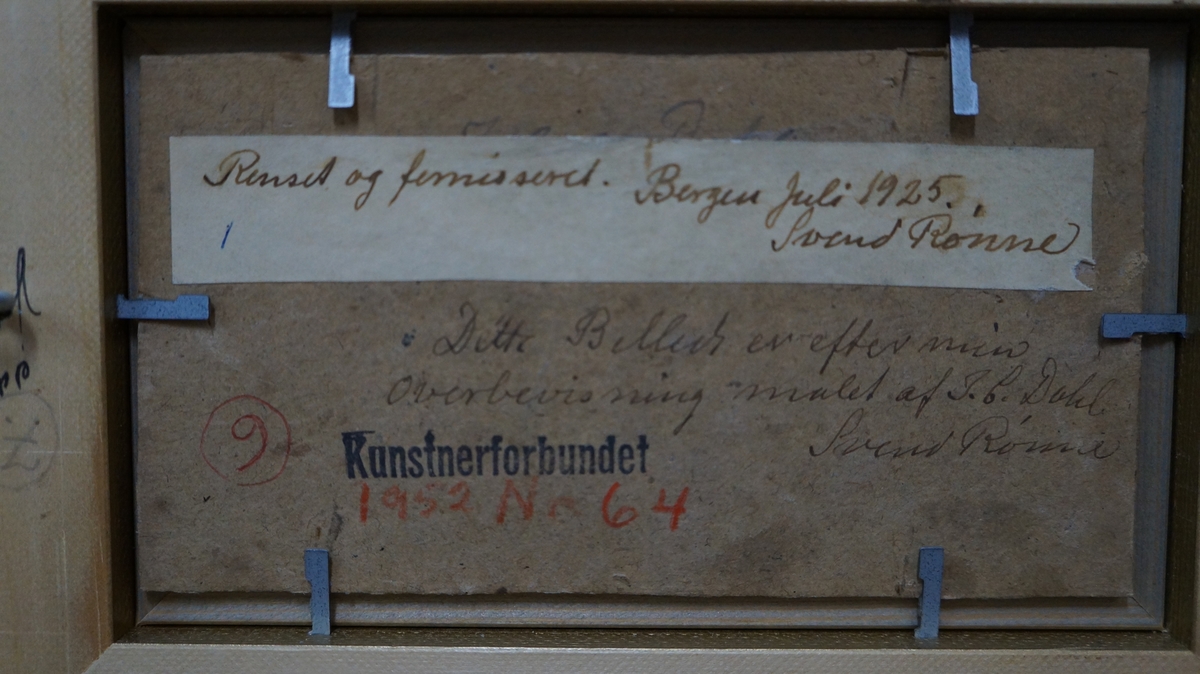 Renset og fernisseret. Bergen Juli 1925.
Svend Rønne
1
Dette Billede er efter min
Overbevisning malet af J. C. Dahl
Svend Rønne
9
Kunstnerforbundet
1952 No 64